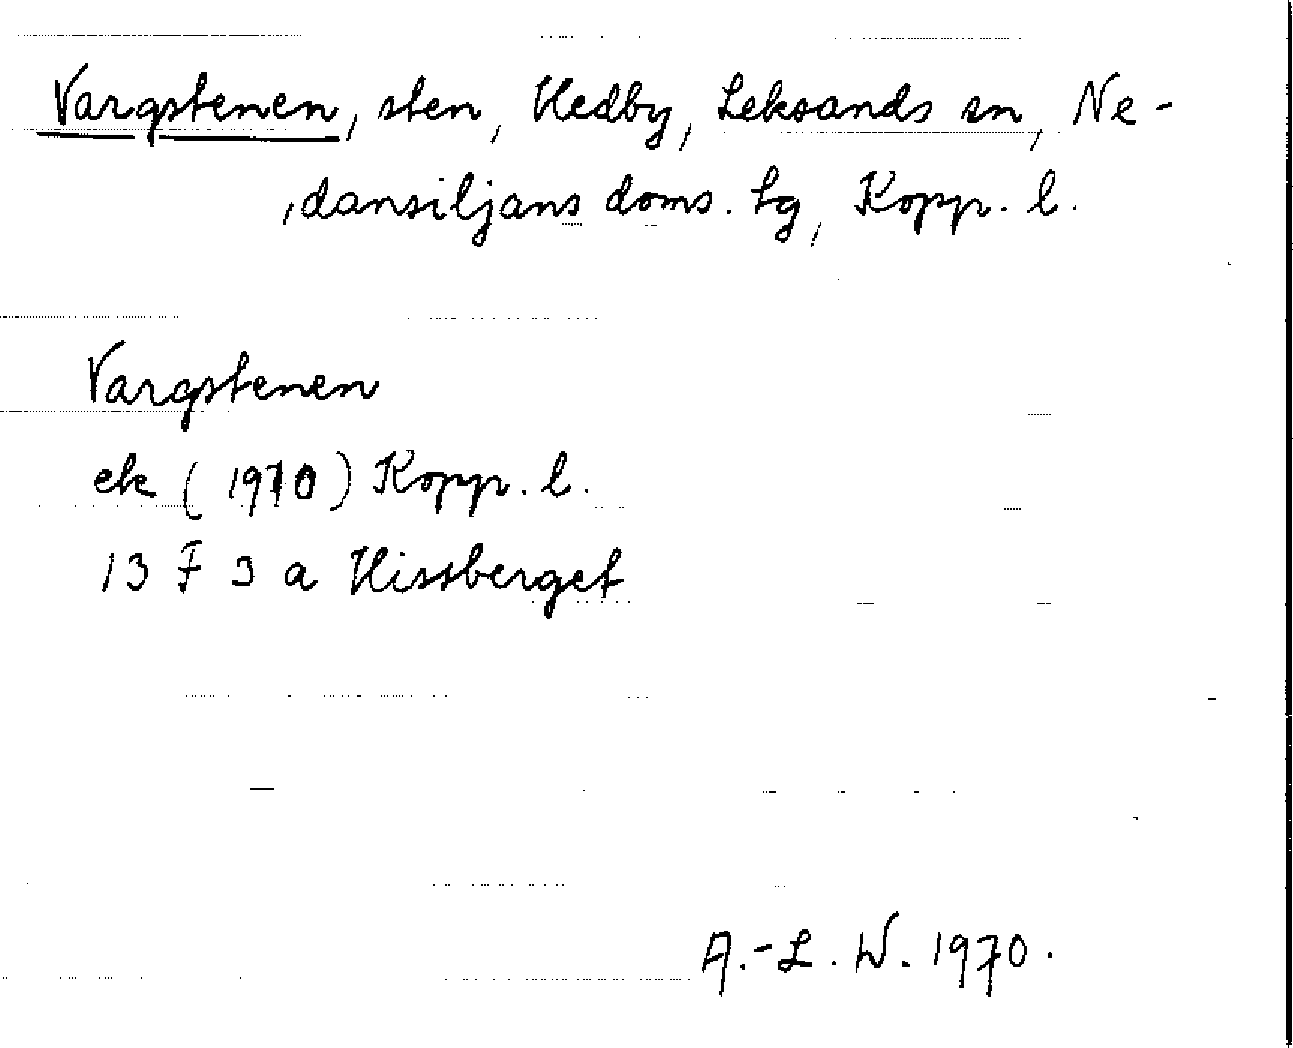 Vargstenen, sten, Hedby, Leksands sn, Ne-
dansiljans doms. tg, Kopp. l.
Vargstenen
ek (1970) Kopp. l.
13 F 3 a Hissberget
A.-L. W. 1970.